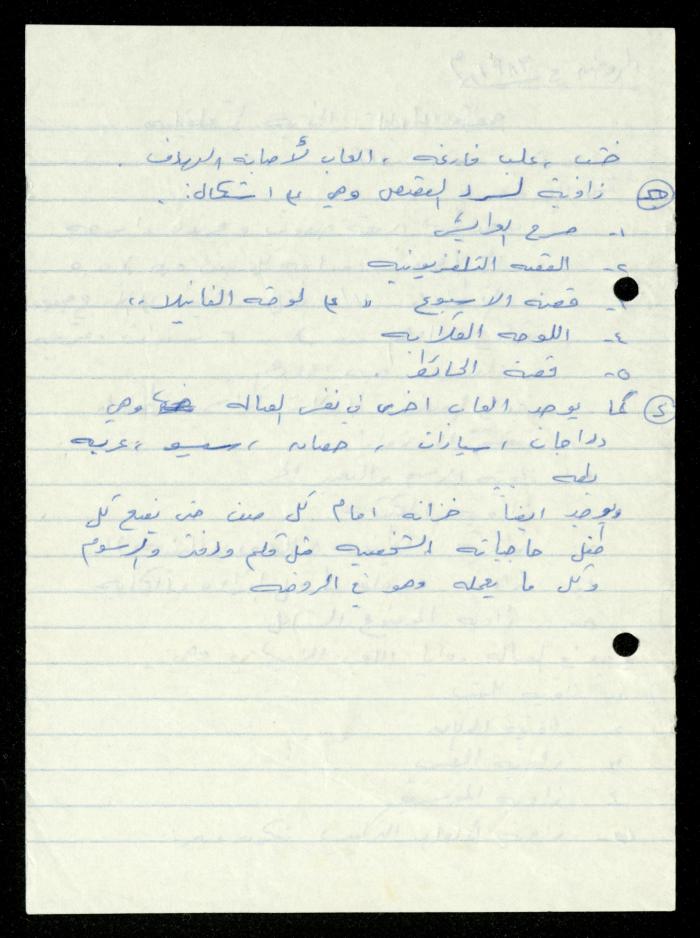 خشب ، علب فارغه ، العاب لأصابه الهدف .
زاوية لسرد القصص وهي ٤ اشكال :
١- مسرح العرائس
٢- القصه التلفزيونيه
٣- قصة الاسبوع " ع لوحة الفانيلا "
٤- اللوحه القلابه
٥- قصة الحائط .
كما يوجد العاب اخرى في نفس الصاله وهي
دراجات ، سيارات ، حصان ، سيسو ، عربه
يوجد ايضاً خزانه امام كل صف حتى يضع كل
طفل حاجياته الشخصيه مثل قلم ودفتر والرسوم
وكل ما يعمله وهو في الروضه